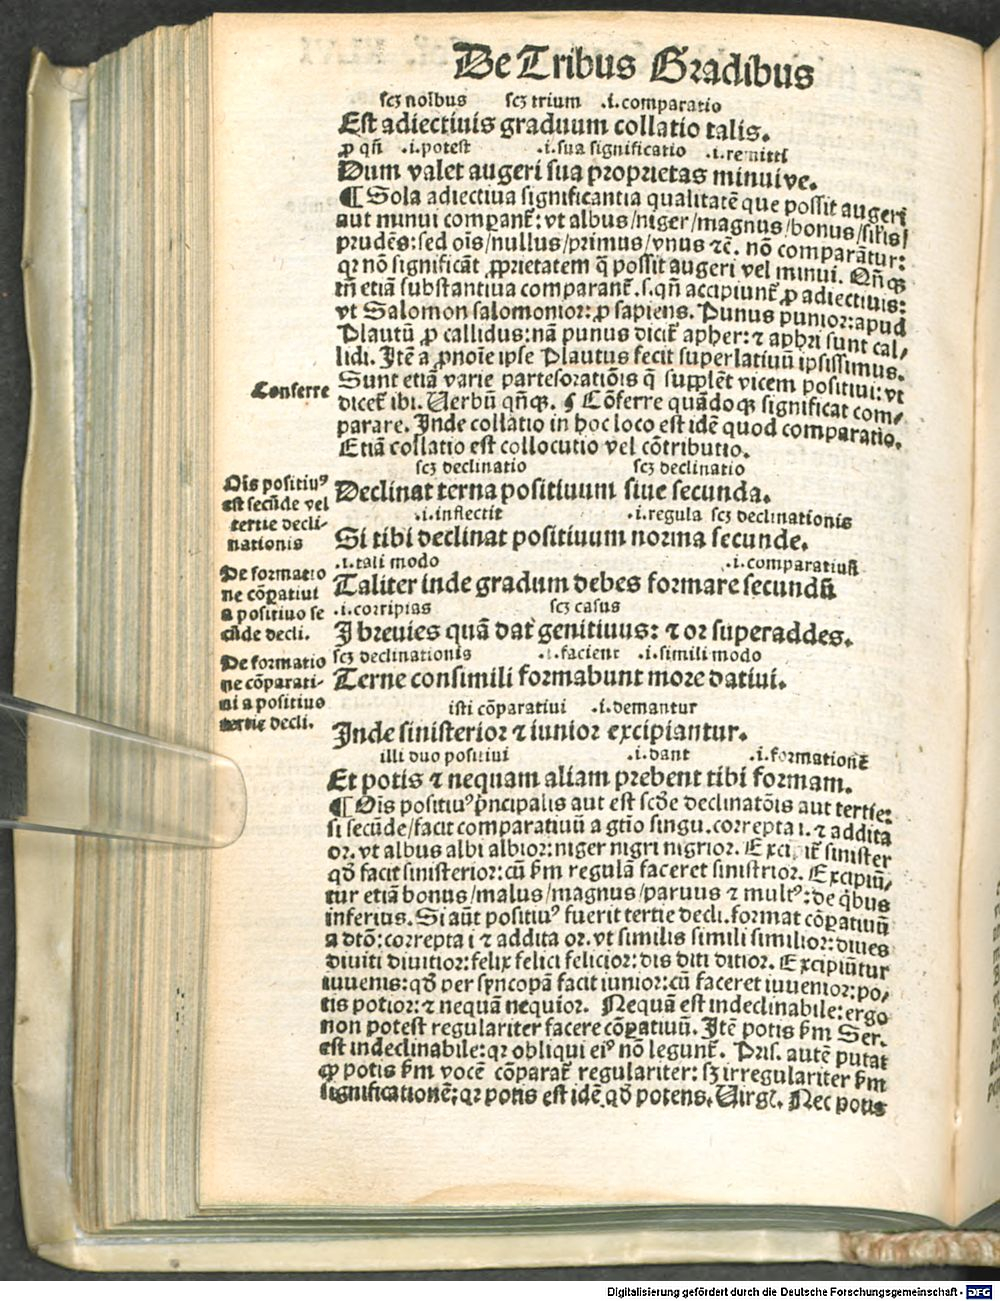 De Tribus Gradibus
scꝫ noībus scꝫ trium .i.comparatio
Est adiectiuis graduum collatio talis.
ꝓ qñ .i.potest .i.sua significatio .i.remitti
Dum valet augeri sua proprietas minuive.
¶ Sola adiectiua significantia qualitatē que possit augeri
aut minui comparant᷑: vt albus/niger/magnus/bonus/
prudēs: sed oīs/nullus/primus/vnus ⁊c̄. nō comparātur:
qꝛ nō significāt ꝓprietatem q̄ possit augeri vel minui. Qñqꝫ
tñ etiā substantiua comparant᷑.s.qñ accipiunt᷑ ꝓ adiectiuis:
vt Salomon salomonior: ꝓ sapiens. Punus punior: apud
Plautū ꝓ callidus: nā punus dicit᷑ apher: ⁊ aphri sunt cal/
lidi. Itē a ꝓnoīe ipse Plautus fecit superlatiuū ipsissimus.
Sunt etiā varie partesoratiōis q̄ supplēt vicem positiui: vt
Conferre
dicet᷑ ibi. Uerbū qñqꝫ. ¶ Cōferre quādoqꝫ significat com/
parare. Inde collatio in hoc loco est idē quod comparatio.
Etiā collatio est collocutio vel cōtributio.
scꝫ declinatio scꝫ declinatio
Oīs positiuꝰ
est secūde vel
tertie decli-
nationis
Declinat terna positiuum siue secunda.
.i.inflectit .i.regula scꝫ declinationis
Si tibi declinat positiuum norma secunde.
.i.tali modo .i.comparatiuū
De formatio
ne cōparatiui
a positiuo se
cūde decli.
Taliter inde gradum debes formare secundū
.i.corripias scꝫ casus
I breuies quā dat genitiuus: ⁊ or superaddes.
De formatio
ne cōparati-
ui a positiuo
tertie decli.
scꝫ declinationis .i.facient .i.simili modo
Terne consimili formabunt more datiui.
isti cōparatiui .i.demantur
Inde sinisterior ⁊ iunior excipiantur.
illi duo positiui .i.dant .i.formationē
Et potis ⁊ nequam aliam prebent tibi formam.
¶ Oīs positiuꝰ p̄ncipalis aut est scd̄e declinatōis aut tertie:
si secūde/facit comparatiuū a gtīo singu.correpta i. ⁊ addita
or. vt albus albi albior: niger nigri nigrior. Excipit᷑ sinister
qd̄ facit sinisterior: cū ẜm regulā faceret sinistrior. Excipiū/
tur etiā bonus/malus/magnus/paruus ⁊ multꝰ: de q̇bus
inferius. Si aūt positiuꝰ fuerit tertie decli. format cōpatiuū
a dtō: correpta i ⁊ addita or. vt similis simili similior: diues
diuiti diuitior: felix felici felicior: dis diti ditior. Excipiūtur
iuuenis: qd̄ per syncopā facit iunior: cū faceret iuuenior: po/
tis potior: ⁊ nequā nequior. Nequā est indeclinabile: ergo
non potest regulariter facere cōpatiuū. Itē potis ẜm Ser.
est indeclinabile: qꝛ obliqui eiꝰ nō legunt᷑. Pris. autē putat
ꝙ potis ẜm vocē cōparat᷑ regulariter: sꝫ irregulariter ẜm
significationē; qꝛ potis est idē qd̄ potens. Uirgl̄. Nec potis
Digitalisierung gefördert durch die Deutsche Forschungsgemeinschaft - DFG